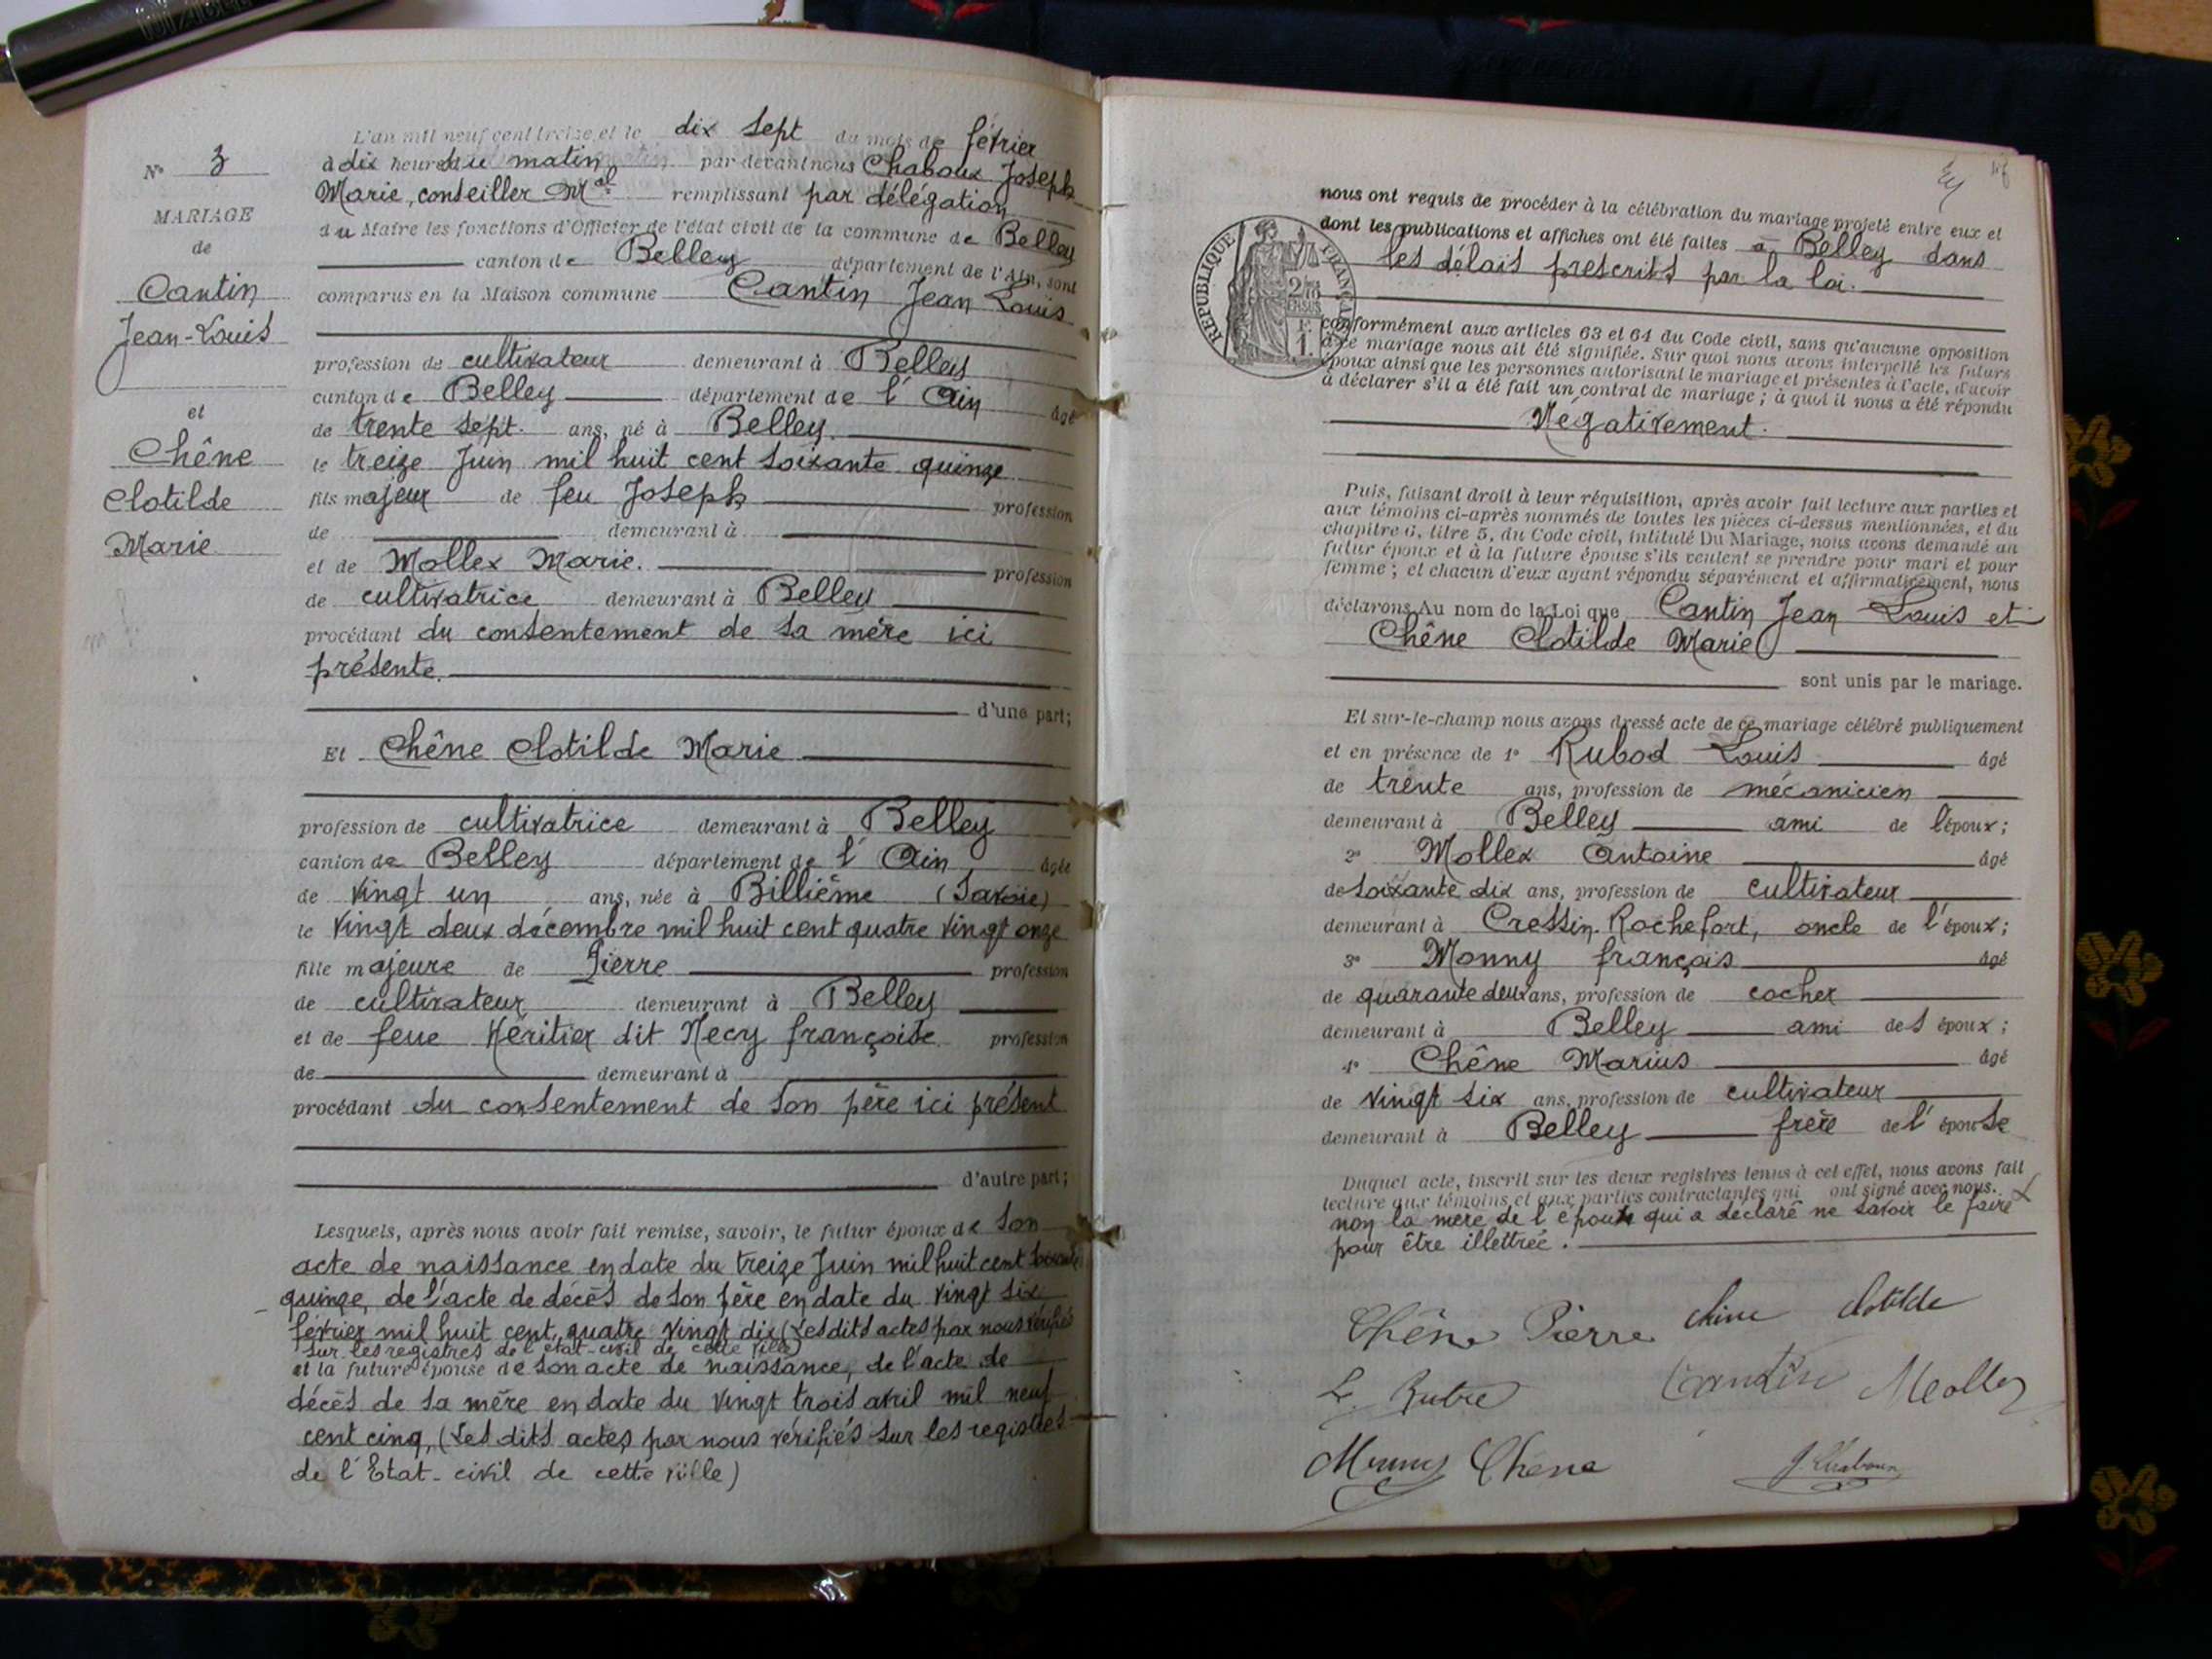 L'an mil neuf cent treize et le dix sept du mois de février
N° 3
à dix heures du matin par devant nous Chaboux Joseph
Marie, conseiller Mal remplissant par délégation
MARIAGE
du Maire les fonctions d'Officier de l'état civil de la commune de Belley
de
canton de Belley département de l'Ain, sont
Cantin
comparus en la Maison commune Cantin Jean Louis
Jean-Louis
profession de cultivateur demeurant à Belley
canton de Belley département de l'Ain âgé
et
de trente sept. ans, né à Belley.
Chêne
le treize Juin mil huit cent soixante quinze
Clotilde
fils majeur de feu Joseph profession
Marie
de demeurant à
et de Mollex Marie. profession
de cultivatrice demeurant à Belley
procédant du consentement de sa mère ici
présente.
d'une part;
Et Chêne Clotilde Marie
profession de cultivatrice demeurant à Belley
canton de Belley département de l'Ain âgée
de vingt un ans, née à Billième (Savoie)
le vingt deux décembre mil huit cent quatre vingt onze
fille majeure de Pierre profession
de cultivateur demeurant à Belley
et de feue Héritier dit Necy françoise profession
de demeurant à
procédant du consentement de son père ici présent
d'autre part;
Lesquels, après nous avoir fait remise, savoir, le futur époux de son
acte de naissance en date du treize Juin mil huit cent soixante
quinze, de l'acte de décès de son père en date du vingt six
février mil huit cent quatre vingt dix (Lesdits actes par nous vérifiés
sur les registres de l'état-civil de cette ville)
et la future épouse de son acte de naissance, de l'acte de
décès de sa mère en date du vingt trois avril mil neuf
cent cinq, (Les dits actes par nous vérifiés sur les registres
de l'Etat-civil de cette ville)
nous ont requis de procéder à la célébration du mariage projeté entre eux et
dont les publications et affiches ont été faites à Belley dans
les délais prescrits par la loi.
REPUBLIQUE FRANÇAISE
conformément aux articles 63 et 64 du Code civil, sans qu'aucune opposition
à ce mariage nous ait été signifiée. Sur quoi nous avons interpellé les futurs
époux ainsi que les personnes autorisant le mariage et présentes à l'acte, d'avoir
à déclarer s'il a été fait un contrat de mariage; à quoi il nous a été répondu
Négativement.
Puis, faisant droit à leur réquisition, après avoir fait lecture aux parties et
aux témoins ci-après nommés de toutes les pièces ci-dessus mentionnées, et du
chapitre 6, titre 5, du Code civil, intitulé Du Mariage, nous avons demandé au
futur époux et à la future épouse s'ils veulent se prendre pour mari et pour
femme; et chacun d'eux ayant répondu séparément et affirmativement, nous
déclarons Au nom de la Loi que Cantin Jean Louis et
Chêne Clotilde Marie
sont unis par le mariage.
Et sur-le-champ nous avons dressé acte de ce mariage célébré publiquement
et en présence de 1° Rubod Louis âgé
de trente ans, profession de mécanicien
demeurant à Belley ami de l'époux;
2° Mollex Antoine âgé
de soixante dix ans, profession de cultivateur
demeurant à Cressin-Rochefort, oncle de l'époux;
3° Monny françois âgé
de quarante deux ans, profession de cocher
demeurant à Belley ami des époux;
4° Chêne Marius âgé
de vingt six ans, profession de cultivateur
demeurant à Belley frère de l'épouse
Duquel acte, inscrit sur les deux registres tenus à cet effet, nous avons fait
lecture aux témoins et aux parties contractantes qui ont signé avec nous.
non la mère de l'époux qui a déclaré ne savoir le faire
pour être illettrée.
Chêne Pierre Chêne Clotilde
Cantin Mollex
Monny Chêne J. Chaboux